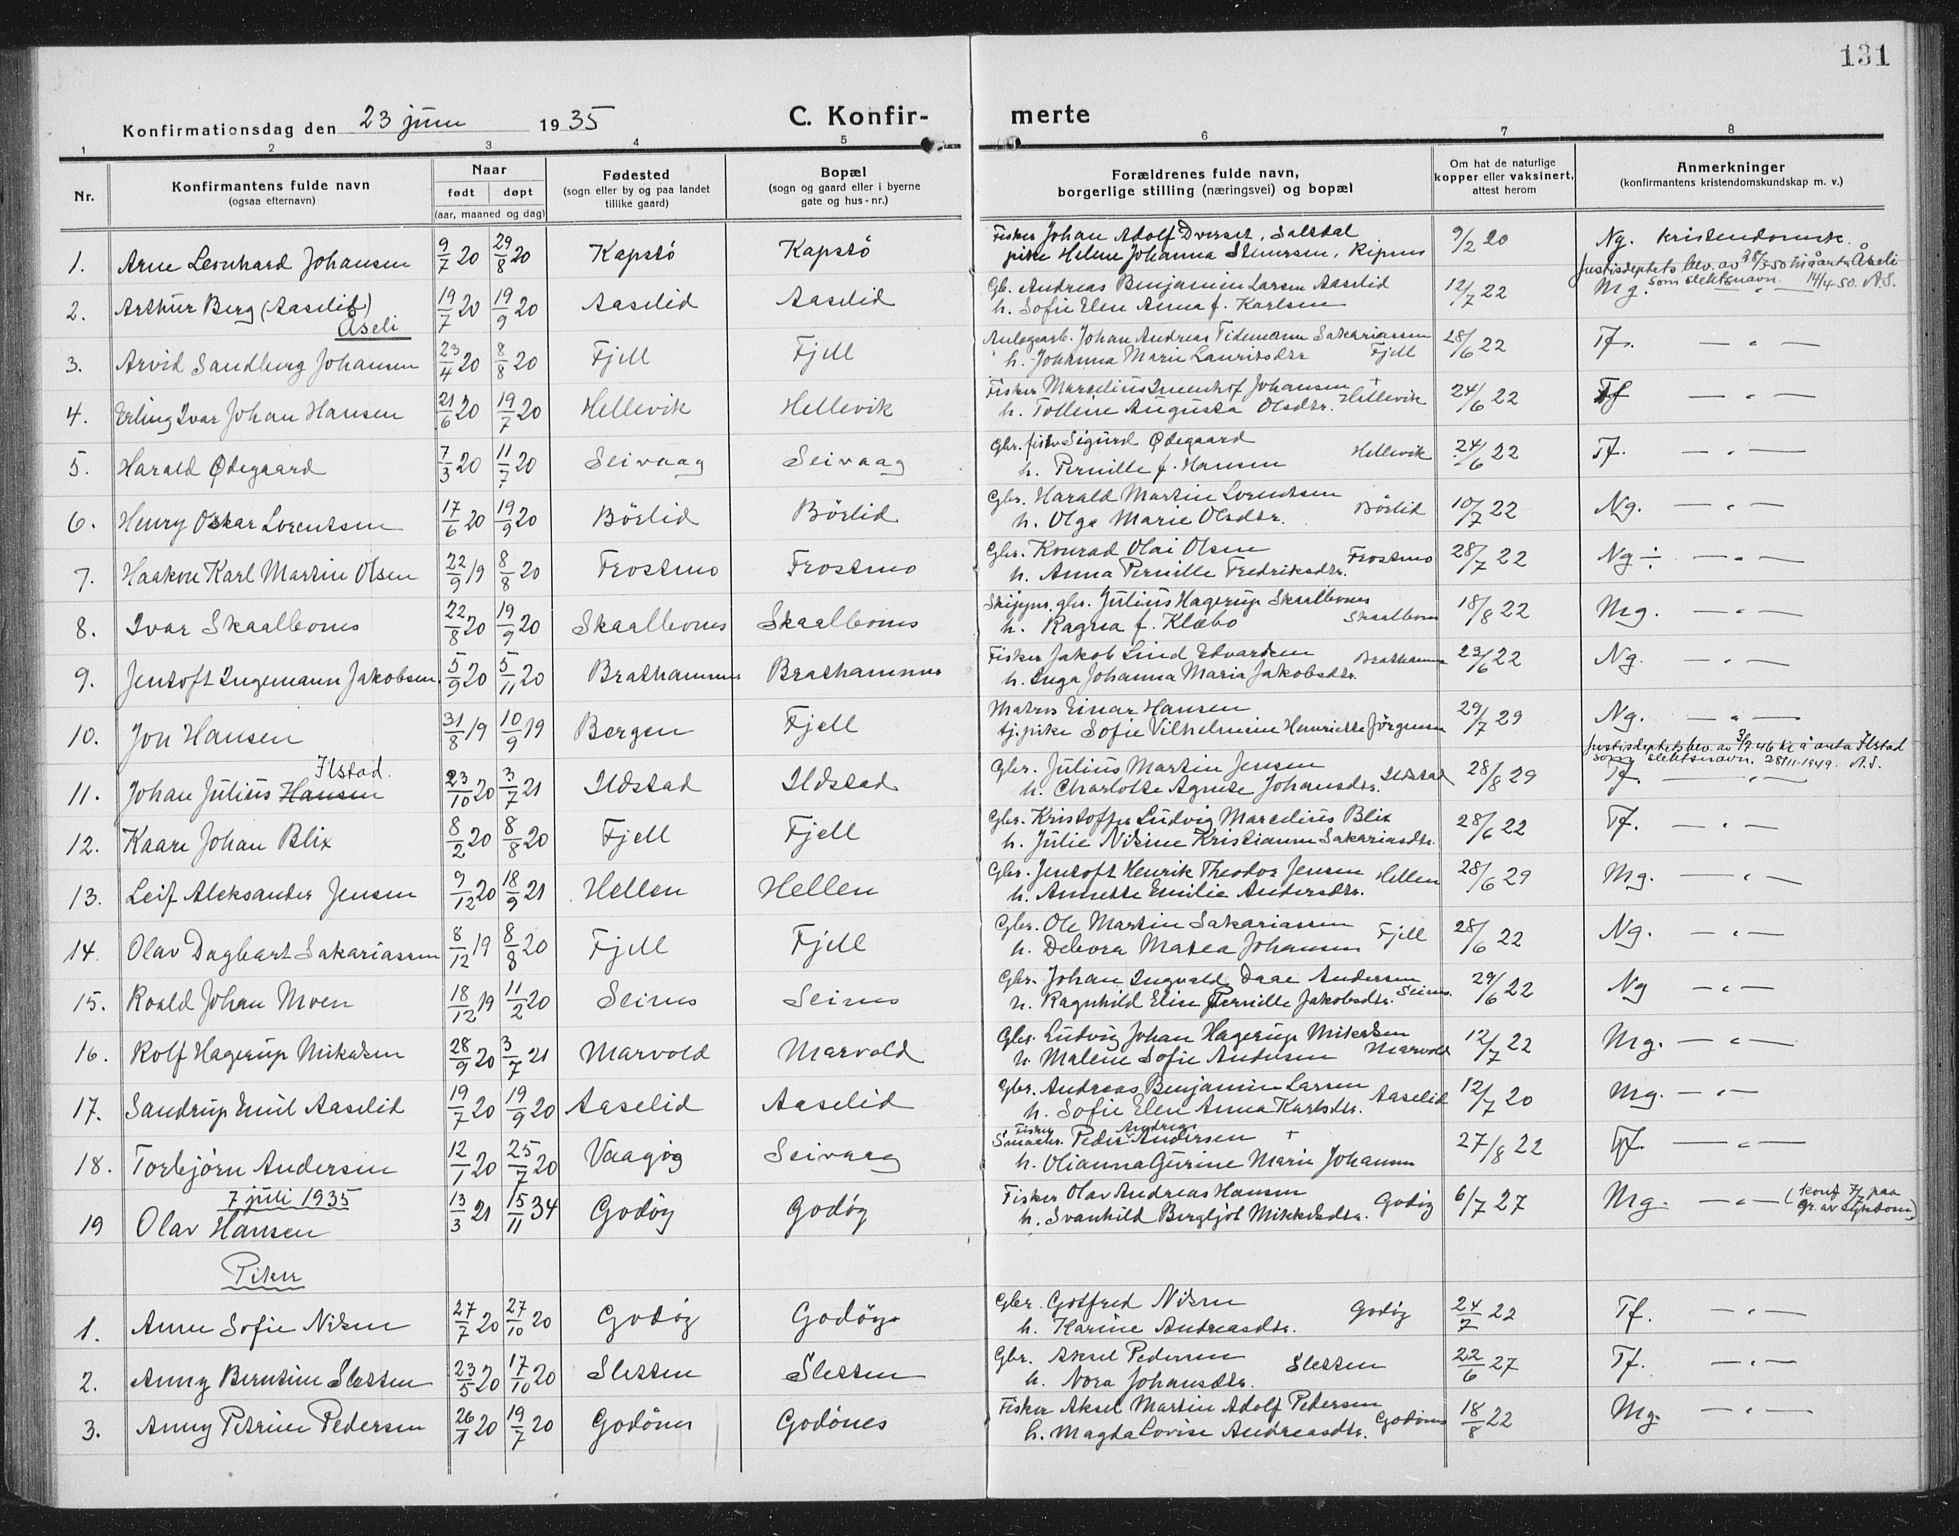 131
Konfirmationsdag den 23 juni 1935 C. Konfir- merte
1 2 3 4 5 6 7 8
Nr.
Konfirmantens fulde navn
(ogsaa efternavn)
Naar
født døpt
(aar, maaned og dag)
Fødested
(sogn eller by og paa landet
tillike gaard)
Bopæl
(sogn og gaard eller i byerne
gate og hus-nr.)
Forældrenes fulde navn,
borgerlige stilling (næringsvei) og bopæl
Om hat de naturlige
kopper eller vaksinert,
attest herom
Anmerkninger
(konfirmantens kristendomskundskap m. v.)
1. Arne Leonhard Johansen 9/7 20 29/8 20 Kapstø Kapstø Fisker Johan Adolf Dverset, Saltdal 9/2 20 Ng. kristendomsk.
pike Helene Johanna Steursen, Ripnes
Justisdeptets bev. av 28/3-50 til å anta Åseli
som slektsnavn. 14/4 50. A.S.
2. Arthur Berg (Aaselid) 19/7 20 19/9 20 Aaselid Aaselid Gb. Andreas Benjamin Larsen Aaselid 12/7 22 Mg. — " —
Åseli h. Sofie Elen Anna f. Karlsen
3. Arvid Sandberg Johansen 23/4 20 8/8 20 Fjell Fjell Anlegsarb. Johan Andreas Tidemann Sakariassen 28/6 22 Tf. — " —
h. Johanna Marie Lauritsdtr Fjell
4. Erling Ivar Johan Hansen 21/6 20 19/7 20 Hellevik Hellevik Fisker Marselius Johansen + 24/6 22 Tf — " —
h. Tolline Augusta Olsdtr. Hellevik
5. Harald Ødegaard 7/3 20 11/7 20 Seivaag Seivaag Gbr. fisker Sigurd Ødegaard 24/6 22 Tf. — " —
h. Pernille f. Hansen Hellevik
6. Henry Oskar Lorentsen 17/6 20 19/9 20 Børlid Børlid Gbr. Harald Martin Lorentsen 10/7 22 Ng. — " —
h. Olga Marie Olsdtr. Børlid
7. Haakon Karl Martin Olsen 22/9 19 8/8 20 Frostmo Frostmo Gbr. Konrad Olai Olsen Frostmo 28/7 22 Ng ÷ — " —
h. Anna Pernille Fredriksdtr.
8. Ivar Skaalbones 22/8 20 19/9 20 Skaalbones Skaalbones Skipper, gbr. Julius Hagerup Skaalbones 18/8 22 Mg. — " —
h. Ragna f. Klæbo Skaalbones
9. Jentoft Ingemann Jakobsen 5/9 20 5/11 20 Brathammer Brathammer Fisker Jakob Lind Edvardsen 23/6 22 Ng. — " —
h. Inga Johanna Maria Jakobsdtr. Brathammer
10. Jon Hansen 31/8 19 10/9 19 Bergen Fjell Matros Einar Hansen 29/7 29 Ng. — " —
tj.pike Sofie Vilhelmine Henriette Jørgensen
Justisdeptets bev. av 3/7.46 til å anta Ilstad
som slektsnavn. 28/11-1949. A.S.
Ilstad.
11. Johan Julius Hansen 23/10 20 3/7 21 Ildstad Ildstad Gbr. Julius Martin Jensen 28/8 29 Tf. — " —
h. Charlotte Agnete Johansdtr. Ildstad
12. Kaare Johan Blix 8/2 20 8/8 20 Fjell Fjell Gbr. Kristoffer Ludvig Marselius Blix 28/6 22 Tf. — " —
h. Julie Nikine Kristianne Sakariasdtr.
13. Leif Aleksander Jensen 9/12 20 18/9 21 Hellen Hellen Gbr. Jentoft Henrik Theodor Jensen 28/6 29 Mg. — " —
h. Annette Emilie Andersdtr. Hellen
14. Olav Dagbart Sakariassen 8/12 19 8/8 20 Fjell Fjell Gbr. Ole Martin Sakariassen 28/6 22 Ng. — " —
h. Debora Matea Johansen Fjell
15. Roald Johan Moen 18/12 19 11/2 20 Seines Seines Gbr. Johan Ingvald Daae Andersen 29/6 22 Ng — " —
h. Ragnhild Elise Pernille Jakobsdtr. Seines.
16. Rolf Hagerup Mikalsen 28/9 20 3/7 21 Marvold Marvold Gbr. Ludvig Johan Hagerup Mikalsen 12/7 22 Mg. — " —
h. Malene Sofie Andersen Marvold
17. Sandrup Emil Aaselid 19/7 20 19/9 20 Aaselid Aaselid Gbr. Andreas Benjamin Larsen 12/7 20 Mg. — " —
h. Sofie Elen Anna Karlsdtr. Aaselid
18. Torbjørn Andersen 12/1 20 25/7 20 Vaagøy Seivaag Fisker Smaabr. Peder Andreas Andersen + 27/8 22 Tf. — " —
h. Olianna Gurine Marie Johansen
7 juli 1935
19 Olav Hansen 13/3 21 15/11 34 Godøy Godøy Fisker Olav Andreas Hansen 6/7 27 Mg. — " — (konf 7/7 paa
gr. av sykdom)
h. Svanhild Bergljot Mikkelsdtr. Godøy
Piker
1. Anne Sofie Nilsen 27/7 20 27/10 20 Godøy Godøy Gbr. Gotfred Nilsen 24/7 22 Tf. — " —
h. Karine Andreasdtr. Godøy
2. Anny Berntine Sletten 23/5 20 17/10 20 Sletten Sletten Gbr. Aksel Pedersen 22/6 27 Tf. — " —
h. Nora Johansdtr. Sletten
3. Anny Petrine Pedersen 26/1 20 19/7 20 Godønes Godønes Fisker Aksel Martin Adolf Pedersen 18/8 22 Mg. — " —
h. Magda Lovise Andreasdtr. Godønes